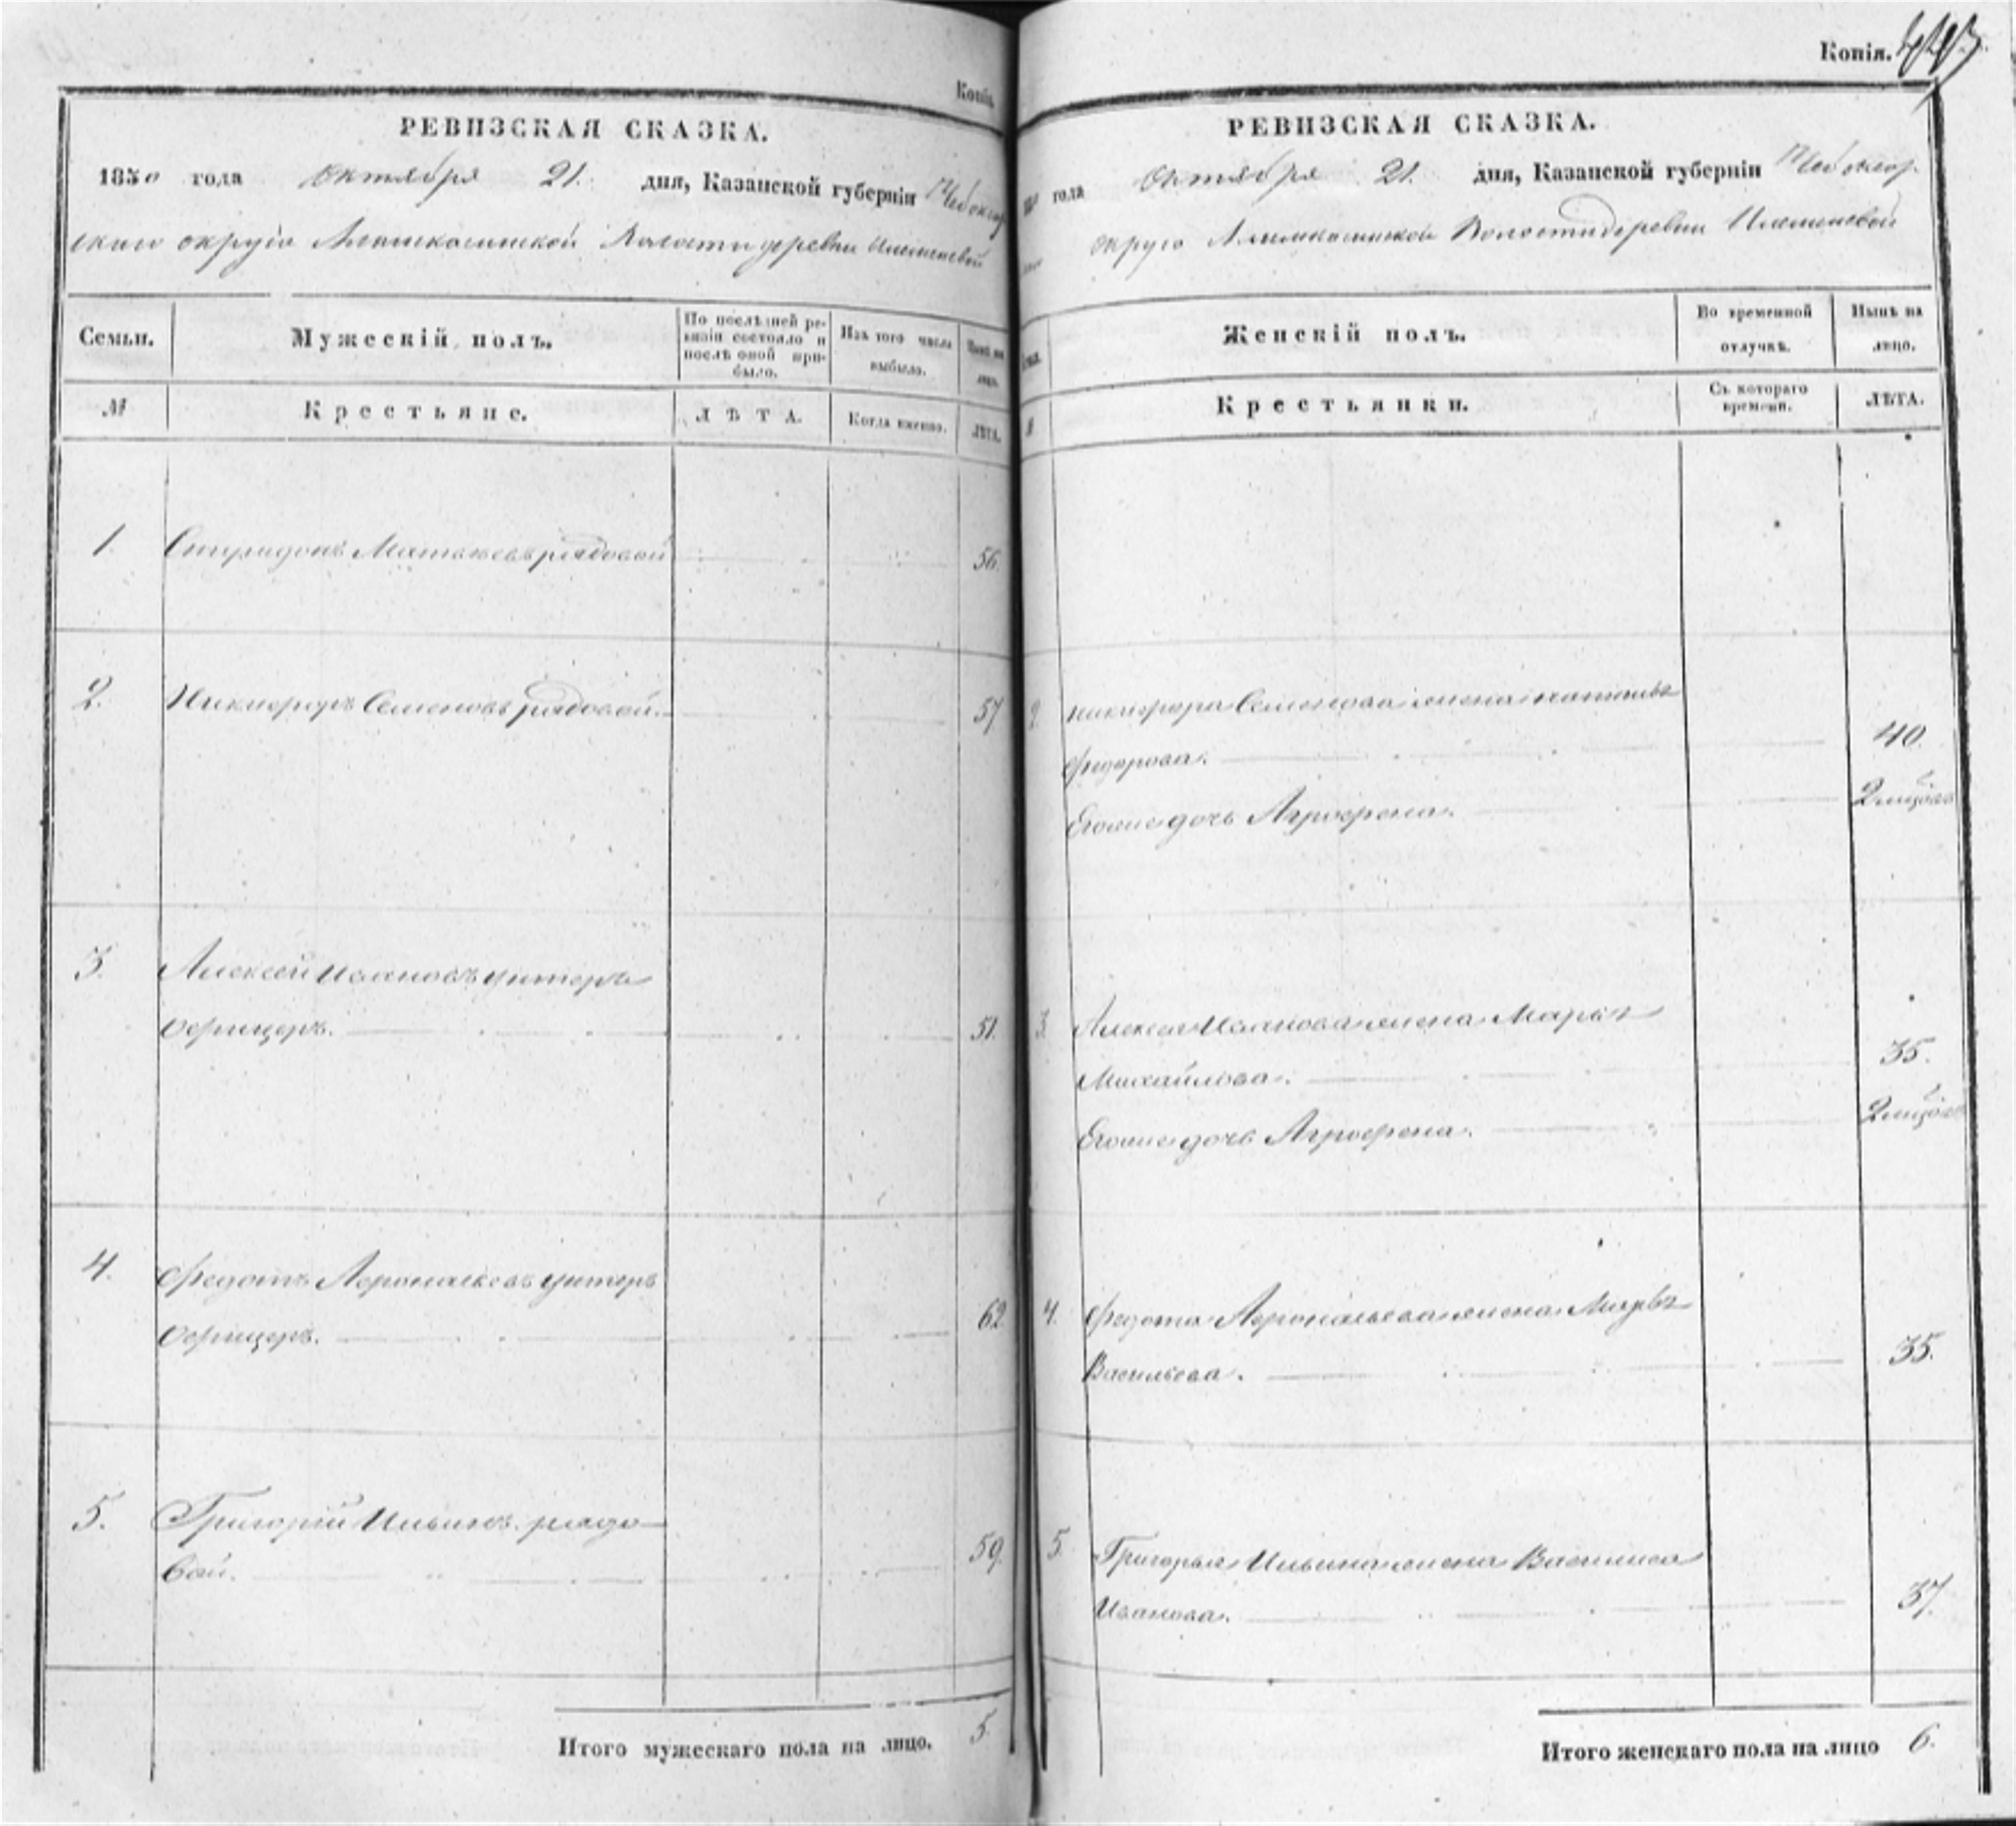 Копія
РЕВИЗСКАЯ СКАЗКА.
1850 года Октября 21. дня, Казанской губерніи Чебоксар
скаго округа Алымкасинской Волости деревни
Семьи.
Мужескій полъ.
По послѣдней ре-
визіи состояло и
послѣ оной при-
было.
Изъ того числа
выбыло.
Нынѣ на
лицо.
№
Крестьяне.
ЛѢТА.
Когда именно.
ЛѢТА.
1. Спиридонъ Матвѣевъ рядовой 56.
2. Никифоръ Семеновъ рядовой. 57
3. Алексей Ивановъ унтеръ
Офицеръ. 51.
4. Федотъ Афонасьевъ унтеръ
Офицеръ. 62
5. Григорій Ильинъ рядо-
вой. 59.
Итого мужескаго пола на лицо. 5.
Копія.
РЕВИЗСКАЯ СКАЗКА.
года Октября 21. дня, Казанской губерніи Чебоксар.
округа Алымкасинской Волости деревни
Женскій полъ.
Во временной
отлучкѣ.
Нынѣ на
лицо.
Крестьянки.
Съ котораго
времени.
ЛѢТА.
2. Никифора Семенова жена Наталья
Федорова. 40.
Егоже дочь Агрофена. 2
3. Алексея Иванова жена Марья
Михайлова. 35.
Егоже дочь Агрофена. 2
4. Федота Афонасьева жена Марья
Васильева. 35.
5. Григорья Ильина жена Василиса
Иванова. 37.
Итого женскаго пола на лицо 6.